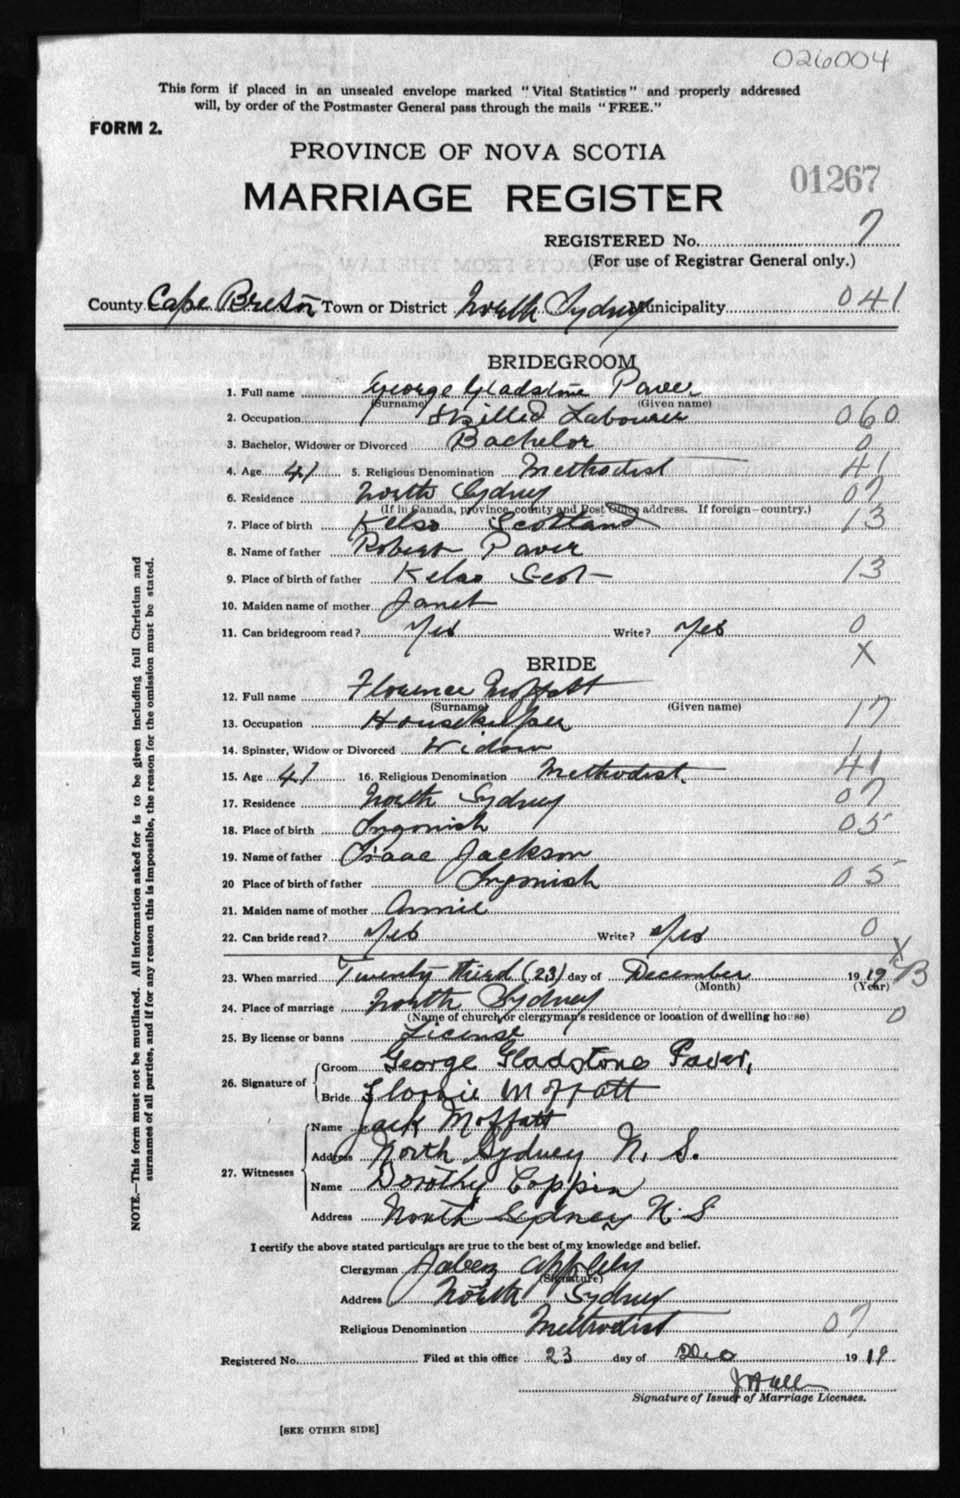 026004
This form if placed in an unsealed envelope marked "Vital Statistics" and properly addressed
will, by order of the Postmaster General pass through the mails "FREE."
FORM 2.
PROVINCE OF NOVA SCOTIA
01267
MARRIAGE REGISTER
REGISTERED No. 7
(For use of Registrar General only.)
County Cape Breton Town or District North Sydney Municipality 041
BRIDEGROOM
1. Full name George Gladstone Paver
(Surname) (Given name)
2. Occupation Skilled Labourer 060
3. Bachelor, Widower or Divorced Bachelor 0
4. Age 41 5. Religious Denomination Methodist 41
6. Residence North Sydney 07
(If in Canada, province, county and Post Office address. If foreign—country.)
7. Place of birth Kelso Scotland 13
8. Name of father Robert Paver
9. Place of birth of father Kelso Scot 13
10. Maiden name of mother Janet
11. Can bridegroom read? Yes Write? Yes 0
X
BRIDE
12. Full name Florence Moffatt
(Surname) (Given name)
13. Occupation Housekeeper 17
14. Spinster, Widow or Divorced Widow 1
15. Age 41 16. Religious Denomination Methodist. 41
17. Residence North Sydney 07
18. Place of birth Ingonish 05
19. Name of father Isaac Jackson
20 Place of birth of father Ingonish 05
21. Maiden name of mother Annie
22. Can bride read? Yes Write? Yes 0
X
23. When married Twenty-third (23) day of December 1919 B
(Month) (Year)
24. Place of marriage North Sydney 0
(Name of church or clergyman's residence or location of dwelling house)
25. By license or banns License
26. Signature of Groom George Gladstone Paver,
Bride Florrie Moffatt
27. Witnesses Name Jack Moffatt
Address North Sydney N. S.
Name Dorothy Coppin
Address North Sydney N. S
I certify the above stated particulars are true to the best of my knowledge and belief.
Clergyman Jabez Appleby
(Signature)
Address North Sydney
Religious Denomination Methodist 07
Registered No. Filed at this office 23 day of Dec 1919
Signature of Issuer of Marriage Licenses.
[SEE OTHER SIDE]
NOTE.—This form must not be mutilated. All information asked for is to be given including full Christian and
surnames of all parties, and if for any reason this is impossible, the reason for the omission must be stated.